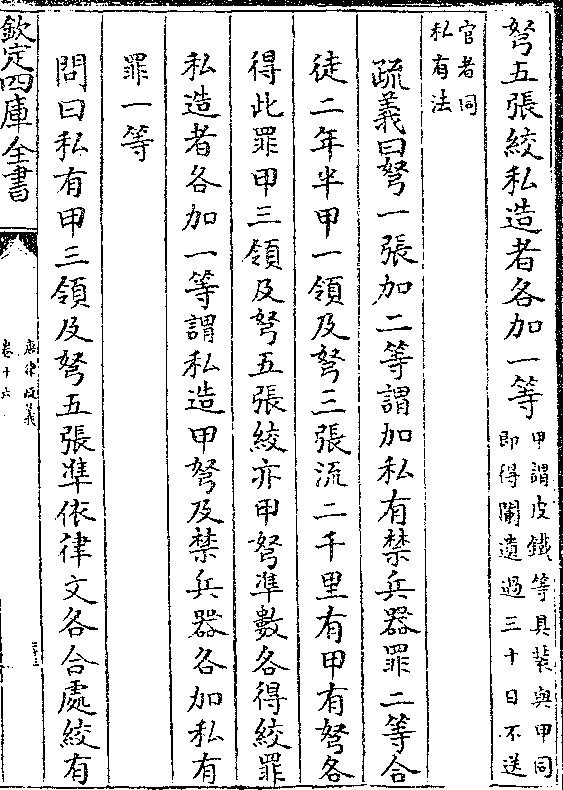 弩五張絞私造者各加一等甲謂皮鐵等具裝與甲同即得闌遺過三十日不送
官者同私有法
疏義曰弩一張加二等謂加私有禁兵器罪二等合
徒二年半甲一領及弩三張流二千里有甲有弩各
得此罪甲三領及弩五張絞亦甲弩準數各得絞罪
私造者各加一等謂私造甲弩及禁兵器各加私有
罪一等
問曰私有甲三領及弩五張準依律文各合處絞有
欽定四庫全書
唐律疏義
卷十六